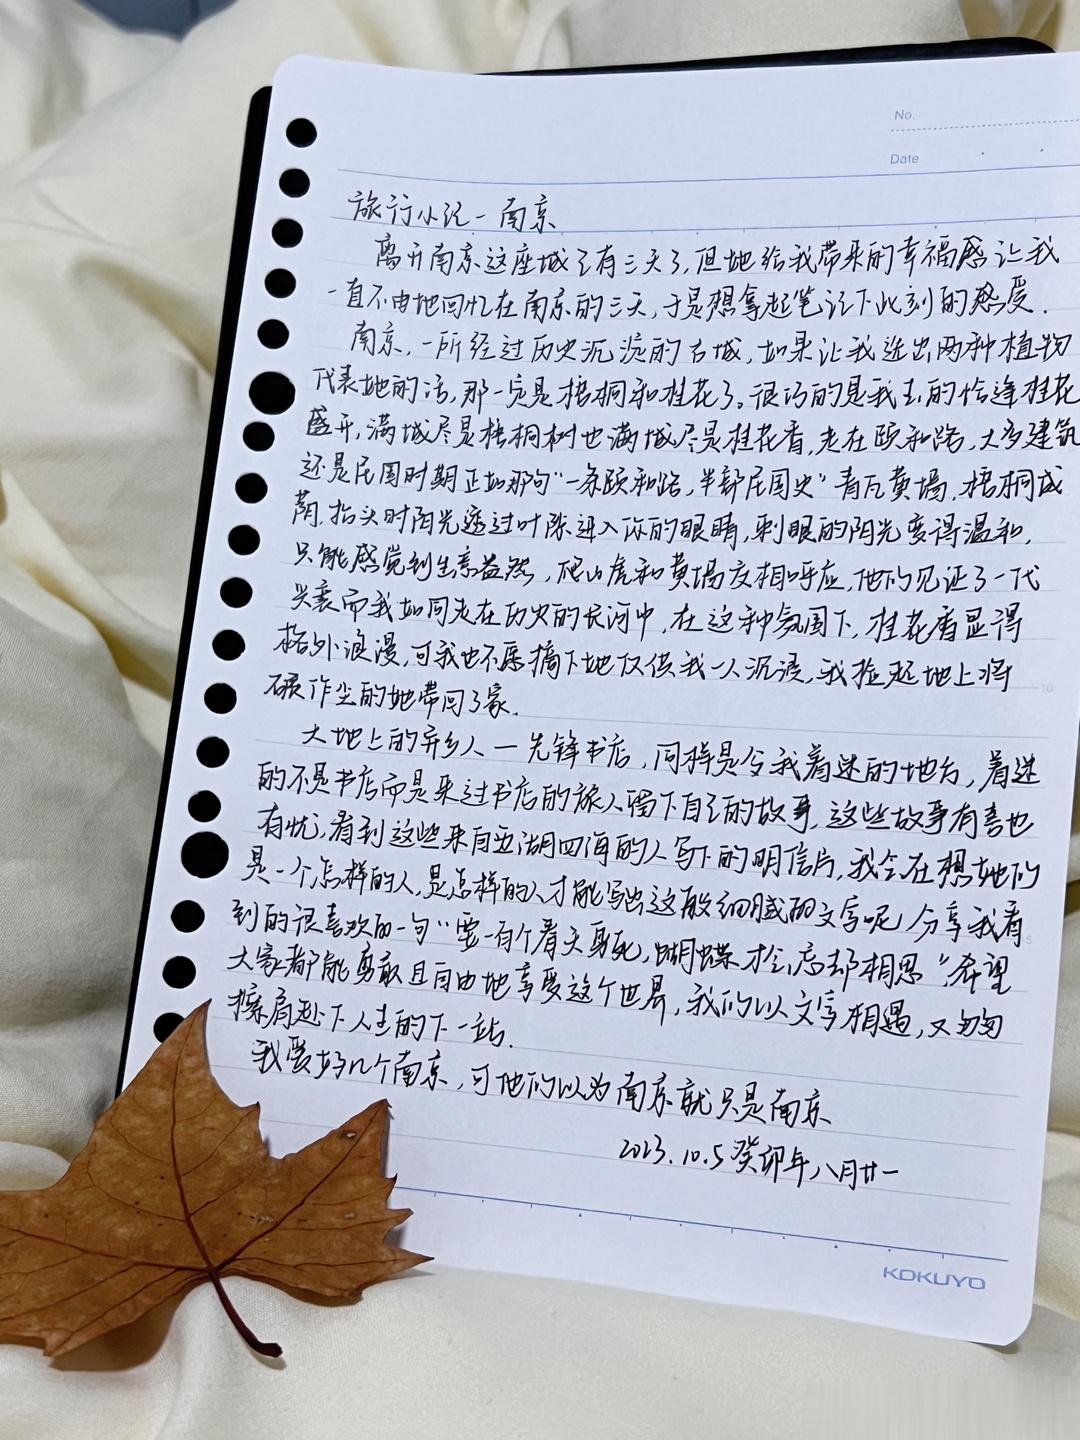 No.
Date
旅行小记-南京
离开南京这座城已有三天了,但她给我带来的幸福感让我
一直不由地回忆在南京的三天,于是想拿起笔记下此刻的感受.
南京,一所经过历史沉淀的古城,如果让我选出两种植物
代表她的话,那一定是梧桐和桂花了。很巧的是我去的恰逢桂花
盛开,满城尽是梧桐树也满城尽是桂花香,走在颐和路,大多建筑
还是民国时期正如那句“一条颐和路,半部民国史”青瓦黄墙,梧桐成
荫,抬头时阳光透过叶隙进入你的眼睛,刺眼的阳光变得温和,
只能感觉到生意益然,爬山虎和黄墙交相呼应,他们见证了一代
兴衰而我如同走在历史的长河中,在这种氛围下,桂花香显得
格外浪漫,可我也不愿摘下她仅供我一人沉浸,我捡起地上将
碾作尘的她带回了家.
大地上的异乡人-先锋书店,同样是令我着迷的地台,着迷
的不是书店而是来过书店的旅人留下自己的故事,这些故事有喜也
有忧,看到这些来自五湖四海的人写下的明信片,我会在想她们
是一个怎样的人,是怎样的人才能写出这般细腻的文字呢,分享我看
到的很喜欢的一句“要一百个春天身死,蝴蝶才会忘却相思”,希望
大家都能勇敢且自由地享受这个世界,我们以文字相遇,又匆匆
擦肩赴下人生的下一站.
我爱好几个南京,可他们以为南京就只是南京
2023.10.5 癸卯年八月廿一
KOKUYO